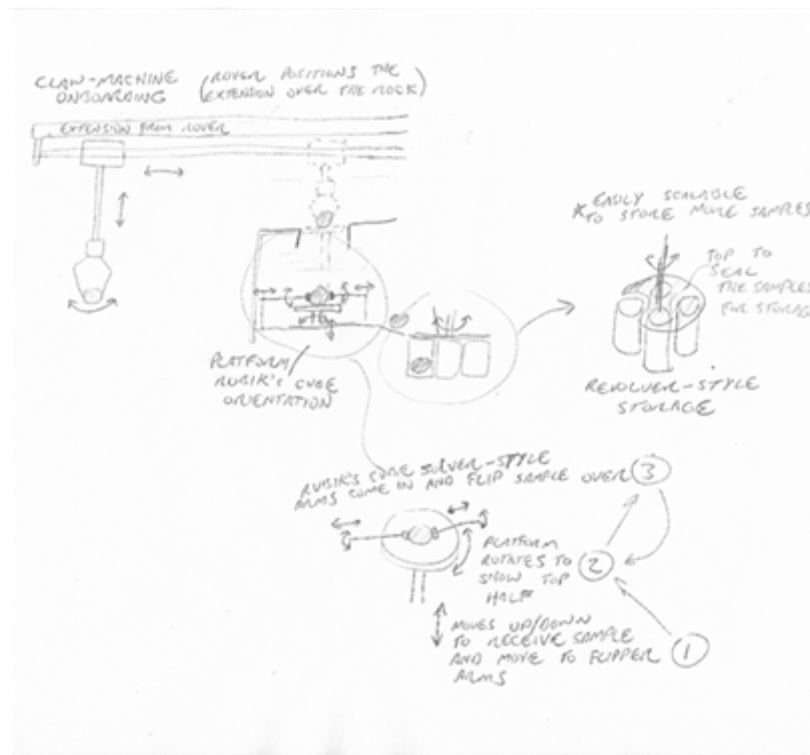 CLAW-MACHINE
ONBOARDING
(ROVER POSITIONS THE
EXTENSION OVER THE ROCK)
EXTENSION FROM ROVER
PLATFORM/
RUBIK'S CUBE
ORIENTATION
* EASILY SCALABLE
TO STORE MORE SAMPLES
TOP TO
SEAL
THE SAMPLES
FOR STORAGE
REVOLVER-STYLE
STORAGE
RUBIK'S CUBE SOLVER-STYLE
ARMS COME IN AND FLIP SAMPLE OVER
3
PLATFORM
ROTATES TO
SHOW TOP
HALF
2
MOVES UP/DOWN
TO RECEIVE SAMPLE
AND MOVE TO FLIPPER
ARMS
1